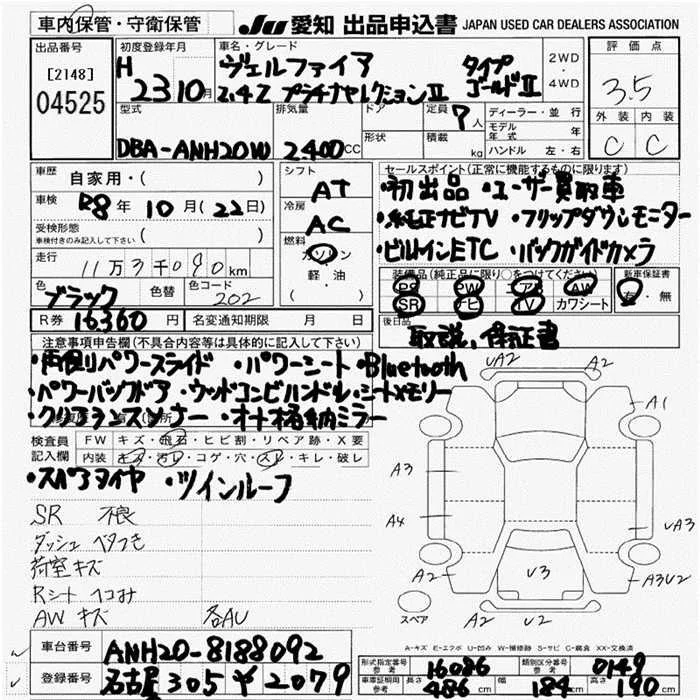 車内保管・守衛保管
JU 愛知 出品申込書 JAPAN USED CAR DEALERS ASSOCIATION
出品番号 初度登録年月 車名・グレード 2WD・4WD 評価点
[2148]
04525
H 23 10月
ヴェルファイア タイプ
2.4Z プラチナセレクションII ゴールドII
3.5
型式 排気量 ドア 定員 7人 ディーラー・並行 外装 内装
形状 積載 kg モデル年式 年
DBA-ANH20W 2.400CC ハンドル 左・右 C C
車歴 自家用・( ) シフト AT セールスポイント(正常に機能するものに限ります)
・初出品 ・ユーザー買取車
車検 R8年10月(22日) 冷房 AC
・純正ナビTV ・フリップダウンモニター
受検形態
車検付きのみ記入して下さい ( ) 燃料
・ビルインETC ・バックガイドカメラ
走行 11万3千090km ガソリン 軽・油 ( )
装備品(純正品に限り○をつけてください) 新車保証書
色 ブラック 色替 色コード 202
PS PW AW 有・無
SR ナビ TV カワシート
R券 16360円 名変通知期限 月 日 後日品
取説、保証書
注意事項申告欄(不具合内容等は具体的に記入して下さい)
・両側パワースライド ・パワーシート ・Bluetooth
・パワーバックドア ・ウッドコンビハンドル ・シートメモリー
・クリアランスソナー ・オート格納ミラー
検査員記入欄 FW キズ・飛石・ヒビ割・リペア跡・X要
内装 キズ・汚レ・コゲ・穴・スレ・キレ・破レ
・スペアタイヤ ・ツインルーフ
SR 不良
ダッシュ ベタつき
荷室キズ
Rシート ヘコみ
AW キズ 各AU
UA2 A2
A1
A3
A4
UA3
A2 V3 A3U2
スペア A2 U2
A-キズ E-エクボ U-凹み W-補修跡 S-サビ C-腐食 XX-交換済
車台番号 ANH20-8188092
登録番号 名古屋 305 ¥ 2079
形式指定番号 参考 16086 類別区分番号 参考 0149
車庫証明用 参考 長さ 486cm 幅 184cm 高さ 190cm